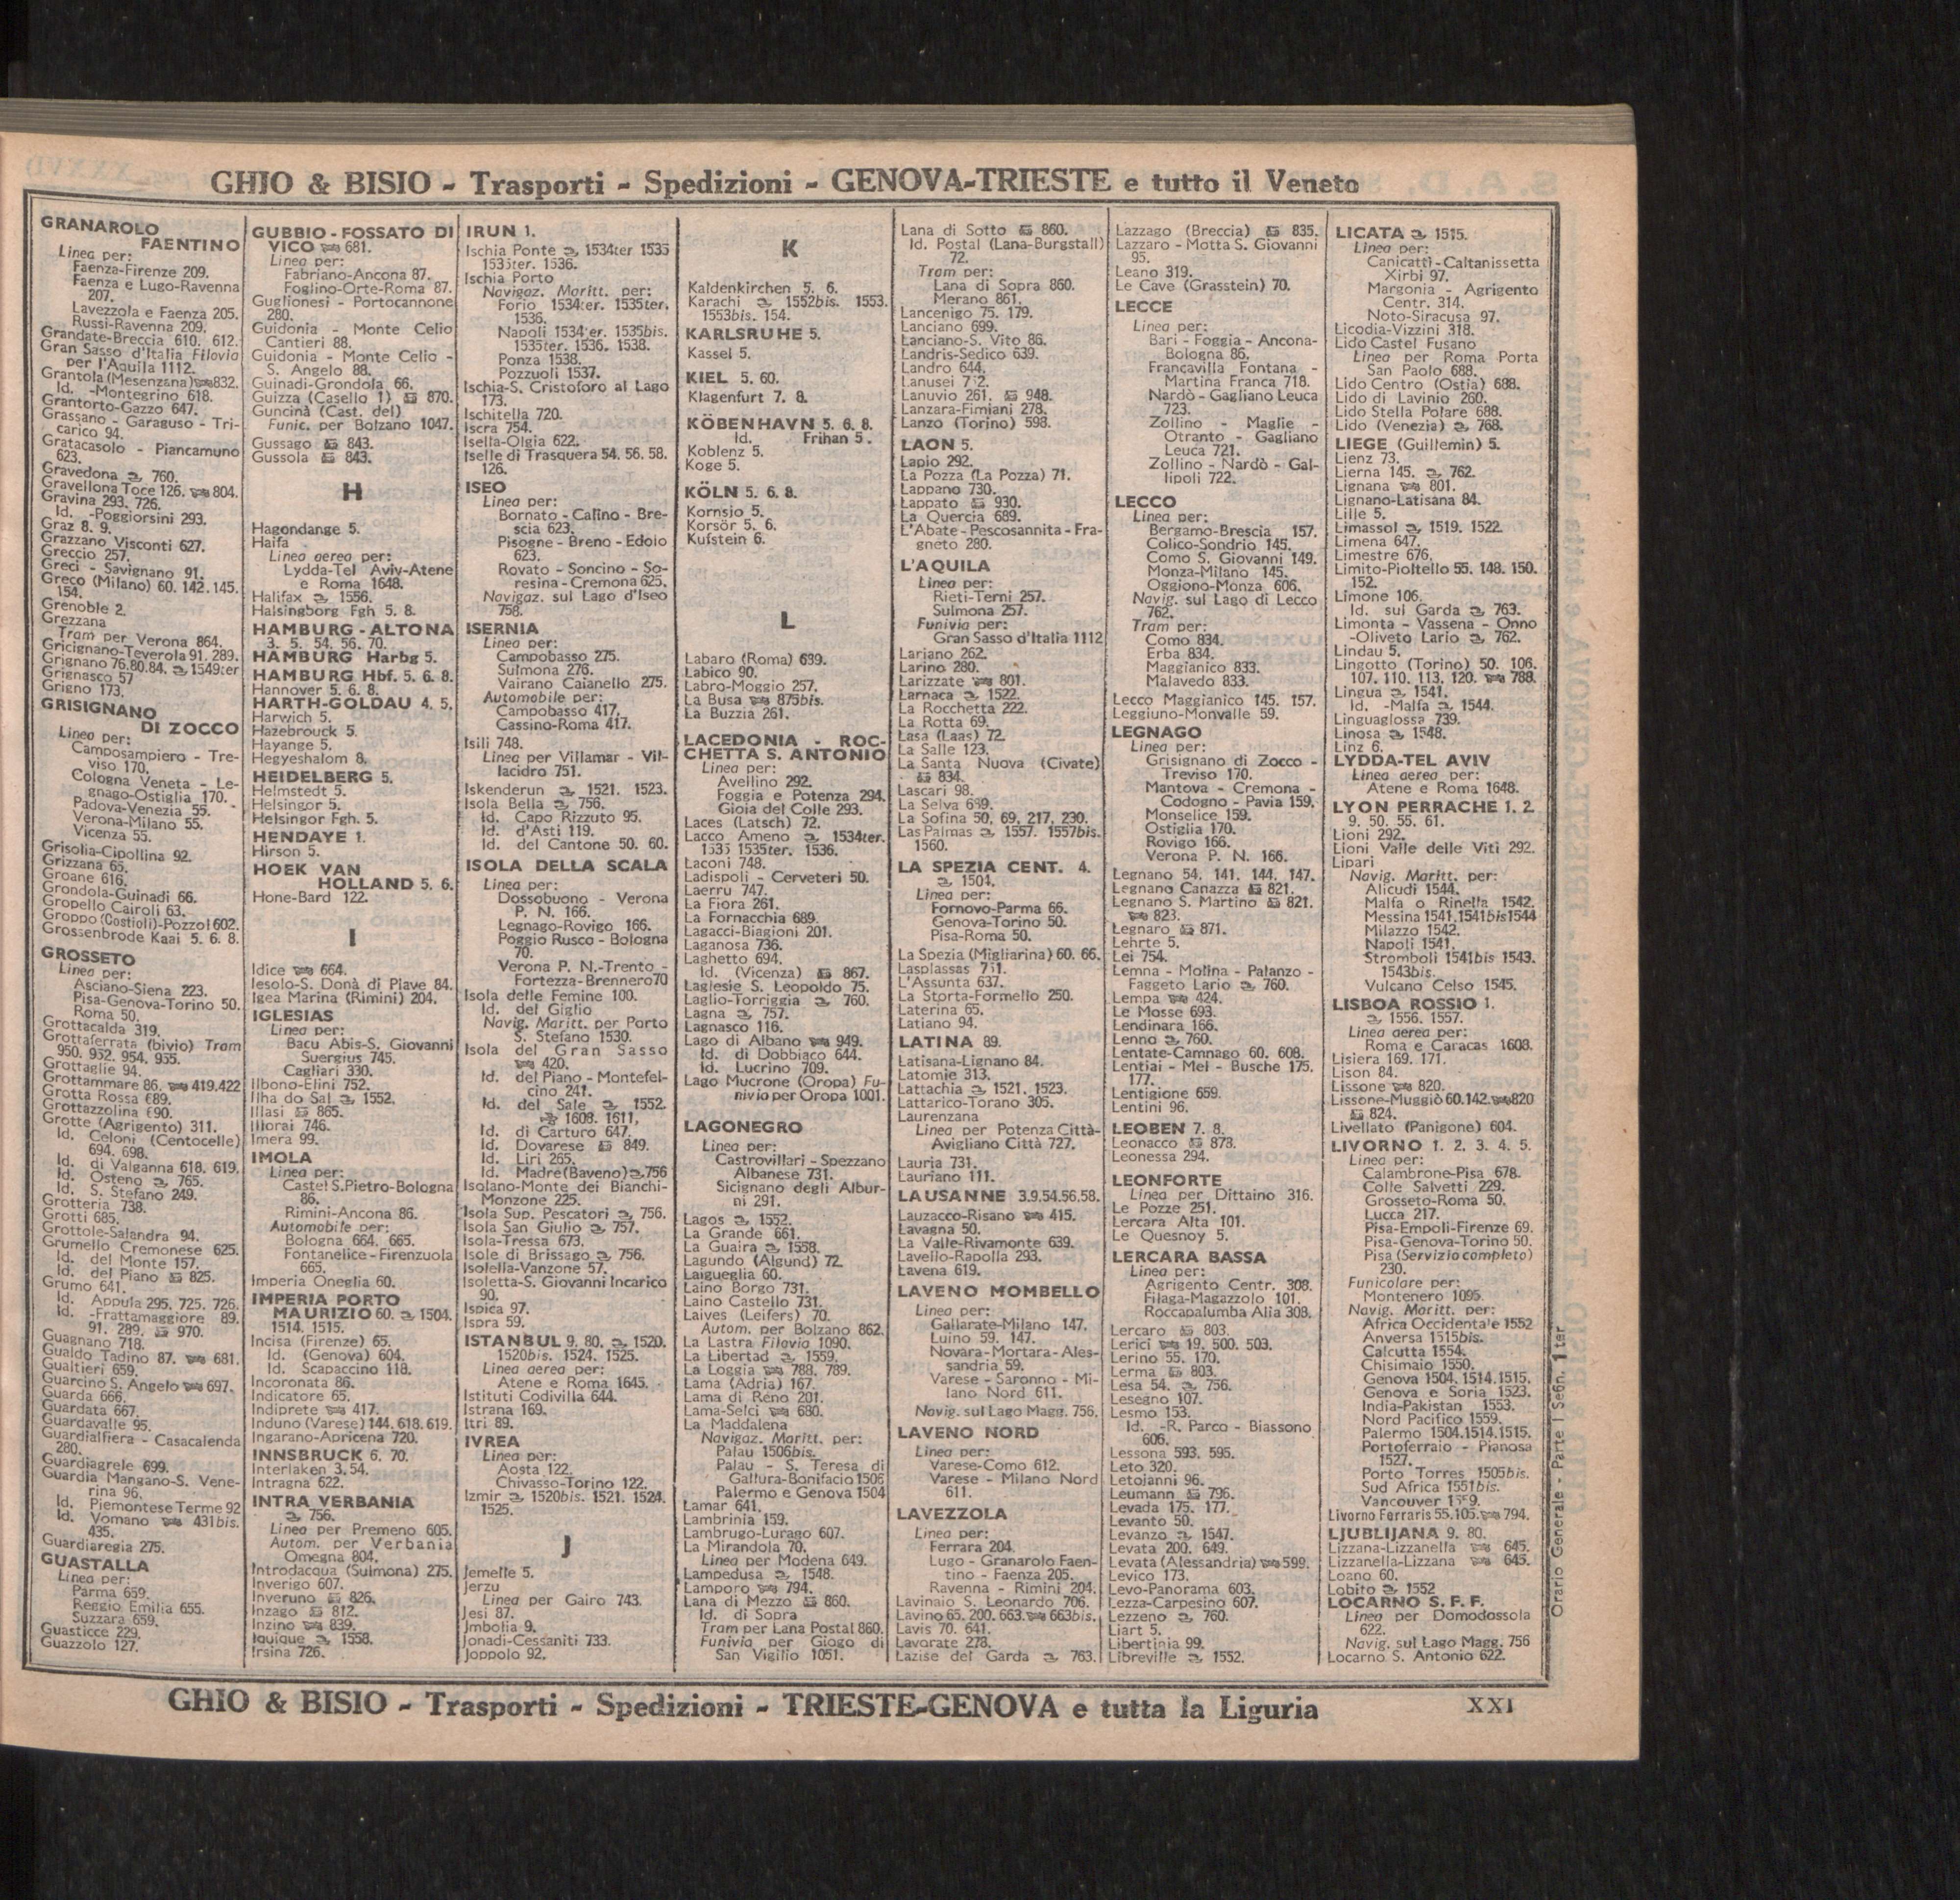 GHIO & BISIO - Trasporti - Spedizioni - GENOVA-TRIESTE e tutto il Veneto
GRANAROLO
FAENTINO
Linea per:
Faenza-Firenze 209.
Faenza e Lugo-Ravenna
207.
Lavezzola e Faenza 205.
Russi-Ravenna 209.
Grandate-Breccia 610. 612.
Gran Sasso d'Italia Filovia
per l'Aquila 1112.
Grantola (Mesenzana) 832.
Id. -Montegrino 618.
Grantorto-Gazzo 647.
Grassano - Garaguso - Tri-
carico 94.
Gratacasolo - Piancamuno
623.
Gravedona 760.
Gravellona Toce 126. 804.
Gravina 293. 726.
Id. -Poggiorsini 293.
Graz 8. 9.
Grazzano Visconti 627.
Greccio 257.
Greci - Savignano 91.
Greco (Milano) 60. 142. 145.
154.
Grenoble 2.
Grezzana
Tram per Verona 864.
Gricignano-Teverola 91. 289.
Grignano 76.80.84. 1549ter
Grignasco 57
Grigno 173.
GRISIGNANO
DI ZOCCO
Linea per:
Camposampiero - Tre-
viso 170.
Cologna Veneta - Le-
gnago-Ostiglia 170.
Padova-Venezia 55.
Verona-Milano 55.
Vicenza 55.
Grisolia-Cipollina 92.
Grizzana 65.
Groane 616.
Grondola-Guinadi 66.
Gropello Cairoli 63.
Groppo (Costioli)-Pozzol 602.
Grossenbrode Kaai 5. 6. 8.
GROSSETO
Linea per:
Asciano-Siena 223.
Pisa-Genova-Torino 50.
Roma 50.
Grottacalda 319.
Grottaferrata (bivio) Tram
950. 952. 954. 955.
Grottaglie 94.
Grottammare 86. 419.422
Grotta Rossa 689.
Grottazzolina 690.
Grotte (Agrigento) 311.
Id. Celoni (Centocelle)
694. 698.
Id. di Valganna 618. 619.
Id. Osteno 765.
Id. S. Stefano 249.
Grotteria 738.
Grotti 685.
Grottole-Salandra 94.
Grumello Cremonese 625.
Id. del Monte 157.
Id. del Piano 825.
Grumo 641.
Id. Appula 295. 725. 726.
Id. -Frattamaggiore 89.
91. 289. 970.
Guagnano 718.
Gualdo Tadino 87. 681.
Gualtieri 659.
Guarcino S. Angelo 697.
Guarda 666.
Guardata 667.
Guardavalle 95.
Guardialfiera - Casacalenda
280.
Guardiagrele 699.
Guardia Mangano-S. Vene-
rina 96.
Id. Piemontese Terme 92
Id. Vomano 431bis.
435.
Guardiaregia 275.
GUASTALLA
Linea per:
Parma 659.
Reggio Emilia 655.
Suzzara 659.
Guasticce 229.
Guazzolo 127.
GUBBIO - FOSSATO DI
VICO 681.
Linea per:
Fabriano-Ancona 87.
Foglino-Orte-Roma 87.
Guglionesi - Portocannone
280.
Guidonia - Monte Celio
Cantieri 88.
Guidonia - Monte Celio -
S. Angelo 88.
Guinadi-Grondola 66.
Guizza (Casello 1) 870.
Guncinà (Cast. del)
Funic. per Bolzano 1047.
Gussago 843.
Gussola 843.
H
Hagondange 5.
Haifa
Linea aerea per:
Lydda-Tel Aviv-Atene
e Roma 1648.
Halifax 1556.
Halsingborg Fgh 5. 8.
HAMBURG - ALTONA
3. 5. 54. 56. 70.
HAMBURG Harbg 5.
HAMBURG Hbf. 5. 6. 8.
Hannover 5. 6. 8.
HARTH-GOLDAU 4. 5.
Harwich 5.
Hazebrouck 5.
Hayange 5.
Hegyeshalom 8.
HEIDELBERG 5.
Helmstedt 5.
Helsingor 5.
Helsingor Fgh. 5.
HENDAYE 1.
Hirson 5.
HOEK VAN
HOLLAND 5. 6.
Hone-Bard 122.
I
Idice 664.
Iesolo-S. Donà di Piave 84.
Igea Marina (Rimini) 204.
IGLESIAS
Linea per:
Bacu Abis-S. Giovanni
Suergius 745.
Cagliari 330.
Ilbono-Elini 752.
Ilha do Sal 1552.
Illasi 865.
Illorai 746.
Imera 99.
IMOLA
Linea per:
Castel S.Pietro-Bologna
86.
Rimini-Ancona 86.
Automobile per:
Bologna 664. 665.
Fontanelice-Firenzuola
665.
Imperia Oneglia 60.
IMPERIA PORTO
MAURIZIO 60. 1504.
1514. 1515.
Incisa (Firenze) 65.
Id. (Genova) 604.
Id. Scapaccino 118.
Incoronata 86.
Indicatore 65.
Indiprete 417.
Induno (Varese) 144. 618. 619.
Ingarano-Apricena 720.
INNSBRUCK 6. 70.
Interlaken 3. 54.
Intragna 622.
INTRA VERBANIA
756.
Linea per Premeno 605.
Autom. per Verbania
Omegna 804.
Introdacqua (Sulmona) 275.
Inverigo 607.
Inveruno 826.
Inzago 812.
Inzino 839.
Iquique 1558.
Irsina 726.
IRUN 1.
Ischia Ponte 1534ter 1535
1535ter. 1536.
Ischia Porto
Navigaz. Maritt. per:
Forio 1534ter. 1535ter.
1536.
Napoli 1534ter. 1535bis.
1535ter. 1536. 1538.
Ponza 1538.
Pozzuoli 1537.
Ischia-S. Cristoforo al Lago
173.
Ischitella 720.
Iscra 754.
Isella-Olgia 622.
Iselle di Trasquera 54. 56. 58.
126.
ISEO
Linea per:
Bornato - Calino - Bre-
scia 623.
Pisogne - Breno - Edolo
623.
Rovato - Soncino - So-
resina - Cremona 625.
Navigaz. sul Lago d'Iseo
758.
ISERNIA
Linea per:
Campobasso 275.
Sulmona 276.
Vairano Caianello 275.
Automobile per:
Campobasso 417.
Cassino-Roma 417.
Isili 748.
Linea per Villamar - Vil-
lacidro 751.
Iskenderun 1521. 1523.
Isola Bella 756.
Id. Capo Rizzuto 95.
Id. d'Asti 119.
Id. del Cantone 50. 60.
ISOLA DELLA SCALA
Linea per:
Dossobuono - Verona
P. N. 166.
Legnago-Rovigo 166.
Poggio Rusco - Bologna
70.
Verona P. N.-Trento -
Fortezza-Brennero 70
Isola delle Femine 100.
Id. del Giglio
Navig. Maritt. per Porto
S. Stefano 1530.
Isola del Gran Sasso
420.
Id. del Piano - Montefel-
cino 241.
Id. del Sale 1552.
1608. 1611,
Id. di Carturo 647.
Id. Dovarese 849.
Id. Liri 265.
Id. Madre (Baveno) 756
Isolano-Monte dei Bianchi-
Monzone 225.
Isola Sup. Pescatori 756.
Isola San Giulio 757.
Isola-Tressa 673.
Isole di Brissago 756.
Isolella-Vanzone 57.
Isoletta-S. Giovanni Incarico
90.
Ispica 97.
Ispra 59.
ISTANBUL 9. 80. 1520.
1520bis. 1524. 1525.
Linea aerea per:
Atene e Roma 1645.
Istituti Codivilla 644.
Istrana 169.
Itri 89.
IVREA
Linea per:
Aosta 122.
Chivasso-Torino 122.
Izmir 1520bis. 1521. 1524.
1525.
J
Jemelle 5.
Jerzu
Linea per Gairo 743.
Jesi 87.
Jmbolia 9.
Jonadi-Cessaniti 733.
Joppolo 92.
K
Kaldenkirchen 5. 6.
Karachi 1552bis. 1553.
1553bis. 154.
KARLSRUHE 5.
Kassel 5.
KIEL 5. 60.
Klagenfurt 7. 8.
KÖBENHAVN 5. 6. 8.
Id. Frihan 5.
Koblenz 5.
Koge 5.
KÖLN 5. 6. 8.
Kornsjo 5.
Korsör 5. 6.
Kufstein 6.
L
Labaro (Roma) 689.
Labico 90.
Labro-Moggio 257.
La Busa 875bis.
La Buzzia 261.
LACEDONIA - ROC-
CHETTA S. ANTONIO
Linea per:
Avellino 292.
Foggia e Potenza 294.
Gioia del Colle 293.
Laces (Latsch) 72.
Lacco Ameno 1534ter.
1535 1535ter. 1536.
Laconi 748.
Ladispoli - Cerveteri 50.
Laerru 747.
La Fiora 261.
La Fornacchia 689.
Lagacci-Biagioni 201.
Laganosa 736.
Laghetto 694.
Id. (Vicenza) 867.
Laglesie S. Leopoldo 75.
Laglio-Torriggia 760.
Lagna 757.
Lagnasco 116.
Lago di Albano 949.
Id. di Dobbiaco 644.
Id. Lucrino 709.
Lago Mucrone (Oropa) Fu-
nivia per Oropa 1001.
LAGONEGRO
Linea per:
Castrovillari - Spezzano
Albanese 731.
Sicignano degli Albur-
ni 291.
Lagos 1552.
La Grande 661.
La Guaira 1558.
Lagundo (Algund) 72.
Laigueglia 60.
Laino Borgo 731.
Laino Castello 731.
Laives (Leifers) 70.
Autom. per Bolzano 862.
La Lastra Filovia 1090.
La Libertad 1559.
La Loggia 788. 789.
Lama (Adria) 167.
Lama di Reno 201.
Lama-Selci 680.
La Maddalena
Navigaz. Maritt. per:
Palau 1506bis.
Palau - S. Teresa di
Gallura-Bonifacio 1506
Palermo e Genova 1504
Lamar 641.
Lambrinia 159.
Lambrugo-Lurago 607.
La Mirandola 70.
Linea per Modena 649.
Lampedusa 1548.
Lamporo 794.
Lana di Mezzo 860.
Id. di Sopra
Tram per Lana Postal 860.
Funivia per Giogo di
San Vigilio 1051.
Lana di Sotto 860.
Id. Postal (Lana-Burgstall)
72.
Tram per:
Lana di Sopra 860.
Merano 861.
Lancenigo 75. 179.
Lanciano 699.
Lanciano-S. Vito 86.
Landris-Sedico 639.
Landro 644.
Lanusei 752.
Lanuvio 261. 948.
Lanzara-Fimiani 278.
Lanzo (Torino) 598.
LAON 5.
Lapio 292.
La Pozza (La Pozza) 71.
Lappano 730.
Lappato 930.
La Quercia 689.
L'Abate - Pescosannita - Fra-
gneto 280.
L'AQUILA
Linea per:
Rieti-Terni 257.
Sulmona 257.
Funivia per:
Gran Sasso d'Italia 1112
Lariano 262.
Larino 280.
Larizzate 801.
Larnaca 1522.
La Rocchetta 222.
La Rotta 69.
Lasa (Laas) 72.
La Salle 123.
La Santa Nuova (Civate)
834.
Lascari 98.
La Selva 689.
La Sofina 50, 69, 217, 230.
Las Palmas 1557. 1557bis.
1560.
LA SPEZIA CENT. 4.
1504.
Linea per:
Fornovo-Parma 66.
Genova-Torino 50.
Pisa-Roma 50.
La Spezia (Migliarina) 60. 66.
Lasplassas 751.
L'Assunta 637.
La Storta-Formello 250.
Laterina 65.
Latiano 94.
LATINA 89.
Latisana-Lignano 84.
Latomie 313.
Lattachia 1521. 1523.
Lattarico-Torano 305.
Laurenzana
Linea per Potenza Città-
Avigliano Città 727.
Lauria 731.
Lauriano 111.
LAUSANNE 3.9.54.56.58.
Lauzacco-Risano 415.
Lavagna 50.
La Valle-Rivamonte 639.
Lavello-Rapolla 293.
Lavena 619.
LAVENO MOMBELLO
Linea per:
Gallarate-Milano 147.
Luino 59. 147.
Novara-Mortara-Ales-
sandria 59.
Varese - Saronno - Mi-
lano Nord 611.
Navig. sul Lago Magg. 756.
LAVENO NORD
Linea per:
Varese-Como 612.
Varese - Milano Nord
611.
LAVEZZOLA
Linea per:
Ferrara 204.
Lugo - Granarolo Faen-
tino - Faenza 205.
Ravenna - Rimini 204.
Lavinaio S. Leonardo 706.
Lavino 65. 200. 663. 663bis.
Lavis 70. 641.
Lavorate 278.
Lazise del Garda 763.
Lazzago (Breccia) 835.
Lazzaro - Motta S. Giovanni
95.
Leano 319.
Le Cave (Grasstein) 70.
LECCE
Linea per:
Bari - Foggia - Ancona-
Bologna 86.
Francavilla Fontana -
Martina Franca 718.
Nardò - Gagliano Leuca
723.
Zollino - Maglie -
Otranto - Gagliano
Leuca 721.
Zollino - Nardò - Gal-
lipoli 722.
LECCO
Linea per:
Bergamo-Brescia 157.
Colico-Sondrio 145.
Como S. Giovanni 149.
Monza-Milano 145.
Oggiono-Monza 606.
Navig. sul Lago di Lecco
762.
Tram per:
Como 834.
Erba 834.
Maggianico 833.
Malavedo 833.
Lecco Maggianico 145. 157.
Leggiuno-Monvalle 59.
LEGNAGO
Linea per:
Grisignano di Zocco -
Treviso 170.
Mantova - Cremona -
Codogno - Pavia 159.
Monselice 159.
Ostiglia 170.
Rovigo 166.
Verona P. N. 166.
Legnano 54. 141. 144. 147.
Legnano Canazza 821.
Legnano S. Martino 821.
823.
Legnaro 871.
Lehrte 5.
Lei 754.
Lemna - Molina - Palanzo -
Faggeto Lario 760.
Lempa 424.
Le Mosse 693.
Lendinara 166.
Lenno 760.
Lentate-Camnago 60. 608.
Lentiai - Mel - Busche 175.
177.
Lentigione 659.
Lentini 96.
LEOBEN 7. 8.
Leonacco 873.
Leonessa 294.
LEONFORTE
Linea per Dittaino 316.
Le Pozze 251.
Lercara Alta 101.
Le Quesnoy 5.
LERCARA BASSA
Linea per:
Agrigento Centr. 308.
Filaga-Magazzolo 101.
Roccapalumba Alia 308.
Lercaro 803.
Lerici 19. 500. 503.
Lerino 55. 170.
Lerma 803.
Lesa 54. 756.
Lesegno 107.
Lesmo 153.
Id. -R. Parco - Biassono
606.
Lessona 593. 595.
Leto 320.
Letojanni 96.
Leumann 796.
Levada 175. 177.
Levanto 50.
Levanzo 1547.
Levata 200. 649.
Levata (Alessandria) 599.
Levico 173.
Levo-Panorama 603.
Lezza-Carpesino 607.
Lezzeno 760.
Liart 5.
Libertinia 99.
Libreville 1552.
LICATA 1515.
Linea per:
Canicattì-Caltanissetta
Xirbi 97.
Margonia - Agrigento
Centr. 314.
Noto-Siracusa 97.
Licodia-Vizzini 318.
Lido Castel Fusano
Linea per Roma Porta
San Paolo 688.
Lido Centro (Ostia) 688.
Lido di Lavinio 260.
Lido Stella Polare 688.
Lido (Venezia) 768.
LIEGE (Guillemin) 5.
Lienz 73.
Lierna 145. 762.
Lignana 801.
Lignano-Latisana 84.
Lille 5.
Limassol 1519. 1522.
Limena 647.
Limestre 676.
Limito-Pioltello 55. 148. 150.
152.
Limone 106.
Id. sul Garda 763.
Limonta - Vassena - Onno
-Oliveto Lario 762.
Lindau 5.
Lingotto (Torino) 50. 106.
107. 110. 113. 120. 788.
Lingua 1541.
Id. -Malfa 1544.
Linguaglossa 739.
Linosa 1548.
Linz 6.
LYDDA-TEL AVIV
Linea aerea per:
Atene e Roma 1648.
LYON PERRACHE 1. 2.
9. 50. 55. 61.
Lioni 292.
Lioni Valle delle Viti 292.
Lipari
Navig. Maritt. per:
Alicudi 1544.
Malfa o Rinella 1542.
Messina 1541.1541bis1544
Milazzo 1542.
Napoli 1541.
Stromboli 1541bis 1543.
1543bis.
Vulcano Celso 1545.
LISBOA ROSSIO 1.
1556. 1557.
Linea aerea per:
Roma e Caracas 1608.
Lisiera 169. 171.
Lison 84.
Lissone 820.
Lissone-Muggiò 60.142. 820
824.
Livellato (Panigone) 604.
LIVORNO 1. 2. 3. 4. 5.
Linea per:
Calambrone-Pisa 678.
Colle Salvetti 229.
Grosseto-Roma 50.
Lucca 217.
Pisa-Empoli-Firenze 69.
Pisa-Genova-Torino 50.
Pisa (Servizio completo)
230.
Funicolare per:
Montenero 1095.
Navig. Maritt. per:
Africa Occidentale 1552
Anversa 1515bis.
Calcutta 1554.
Chisimaio 1550.
Genova 1504.1514.1515.
Genova e Soria 1523.
India-Pakistan 1553.
Nord Pacifico 1559.
Palermo 1504.1514.1515.
Portoferraio - Pianosa
1527.
Porto Torres 1505bis.
Sud Africa 1551bis.
Vancouver 1559.
Livorno Ferraris 55.105. 794.
LJUBLIJANA 9. 80.
Lizzana-Lizzanella 645.
Lizzanella-Lizzana 645.
Loano 60.
Lobito 1552
LOCARNO S. F. F.
Linea per Domodossola
622.
Navig. sul Lago Magg. 756
Locarno S. Antonio 622.
Orario Generale - Parte I Segn. 1 ter
GHIO & BISIO - Trasporti - Spedizioni - TRIESTE-GENOVA e tutta la Liguria
XXI